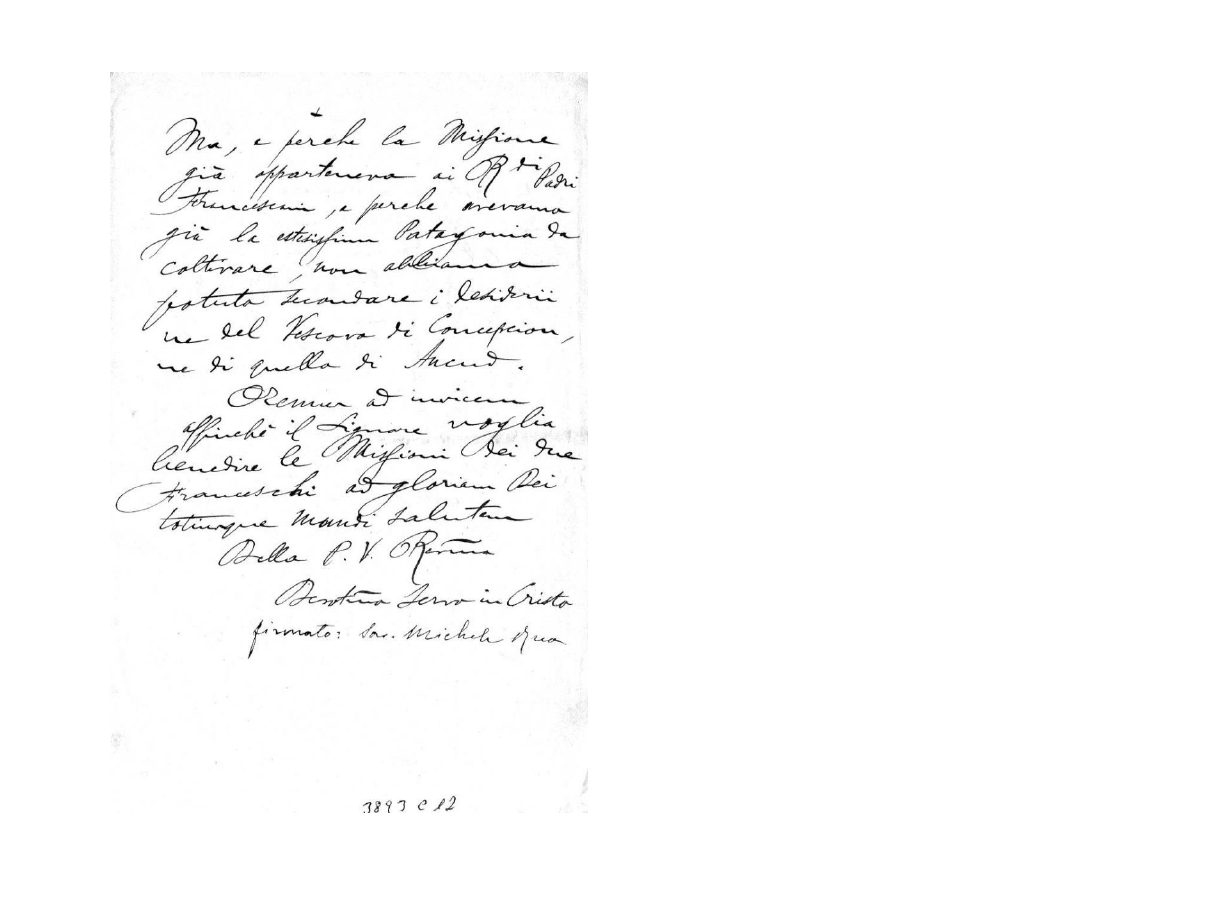 Ma, e perche la Missione
già apparteneva ai R di Padri
Francescani, e perche avevamo
già la estesissima Patagonia da
coltivare, non abbiamo
potuto secondare i desiderii
ne del Vescovo di Concepcion,
ne di quello di Ancud.
Oremus ad invicem
affinchè il Signore voglia
benedire le Missioni dei due
Franceschi ad gloriam Dei
totiusque mundi salutem
Della P. V. Revma
Devotmo Servo in Cristo
firmato: Sac. Michele Rua
3893 C 12